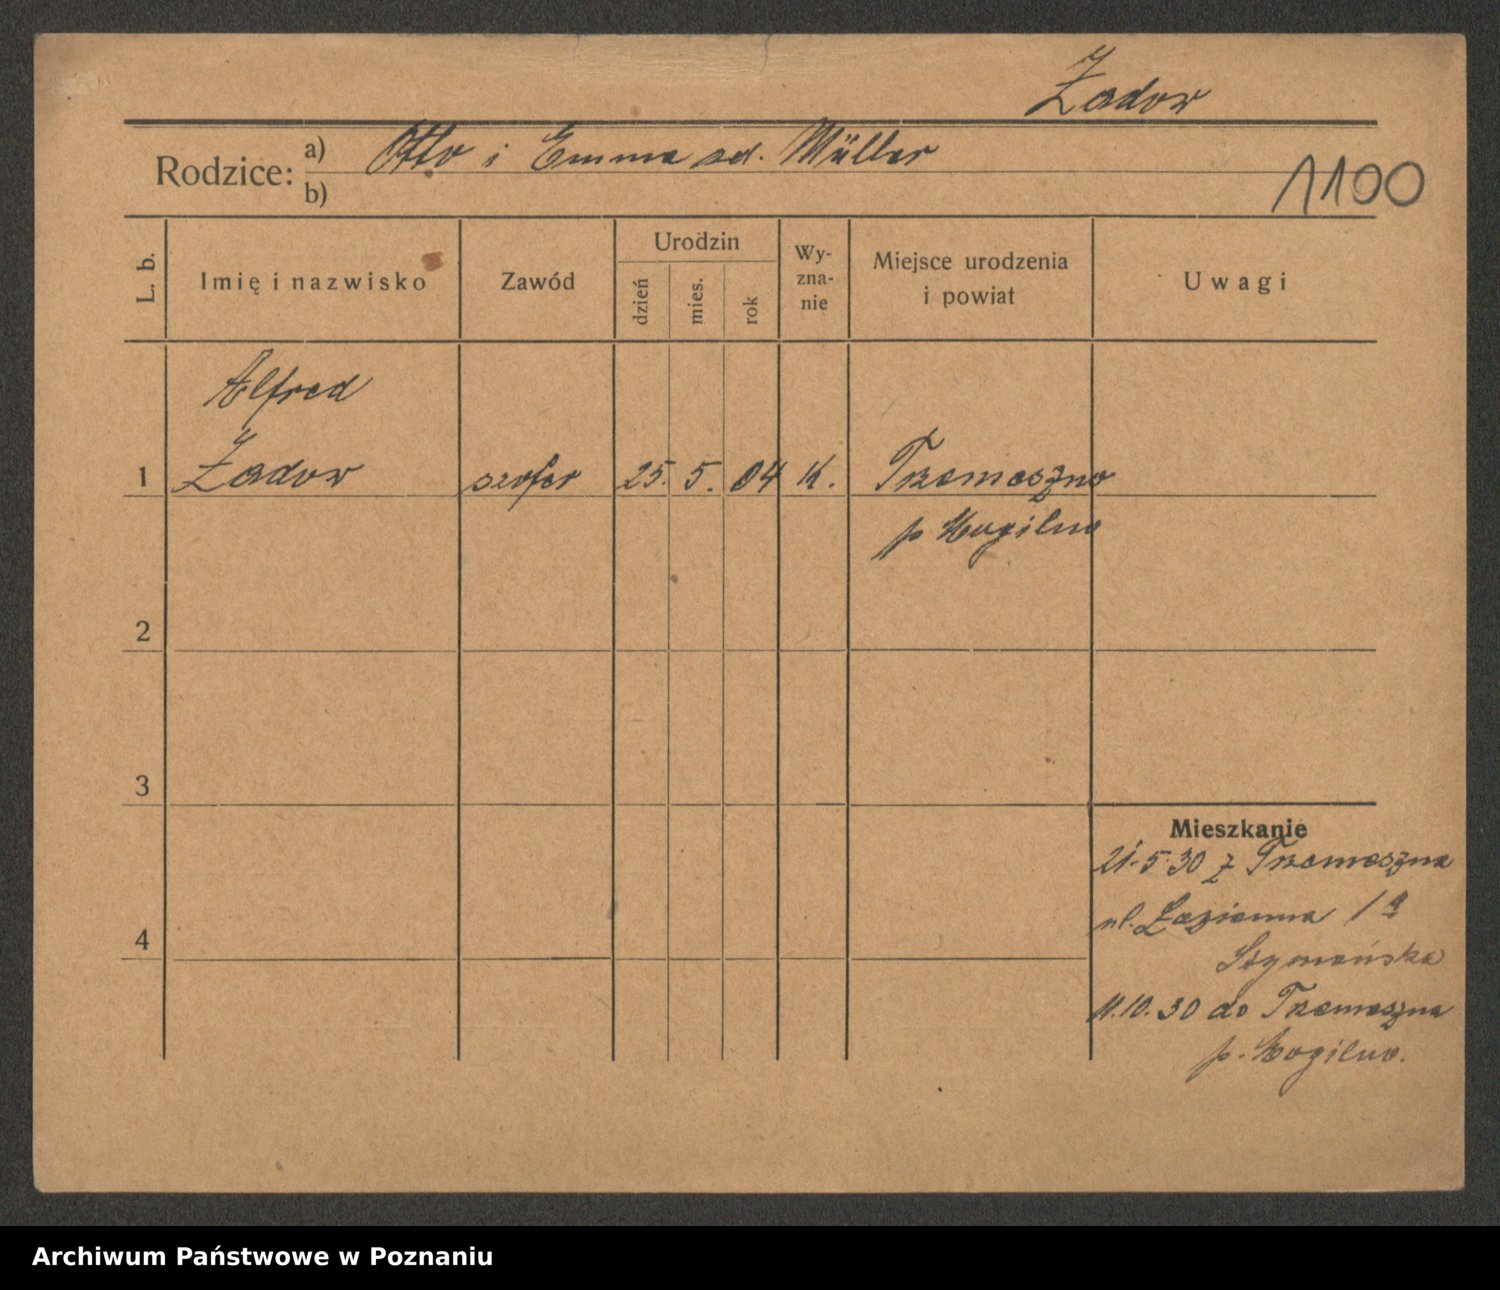 Żadow
Rodzice: a) Otto i Emma zd. Müller
b)
1100
L. b.
Imię i nazwisko
Zawód
Urodzin
dzień
mies.
rok
Wy-
zna-
nie
Miejsce urodzenia
i powiat
Uwagi
Alfred
1 Żadow szofer 25. 5. 04 K. Trzemeszno
p Mogilno
2
3
4
Mieszkanie
21.5.30 z Trzemeszna
ul. Łazienna 1a
Szymańska
11.10.30 do Trzemeszna
p. Mogilno.
Archiwum Państwowe w Poznaniu